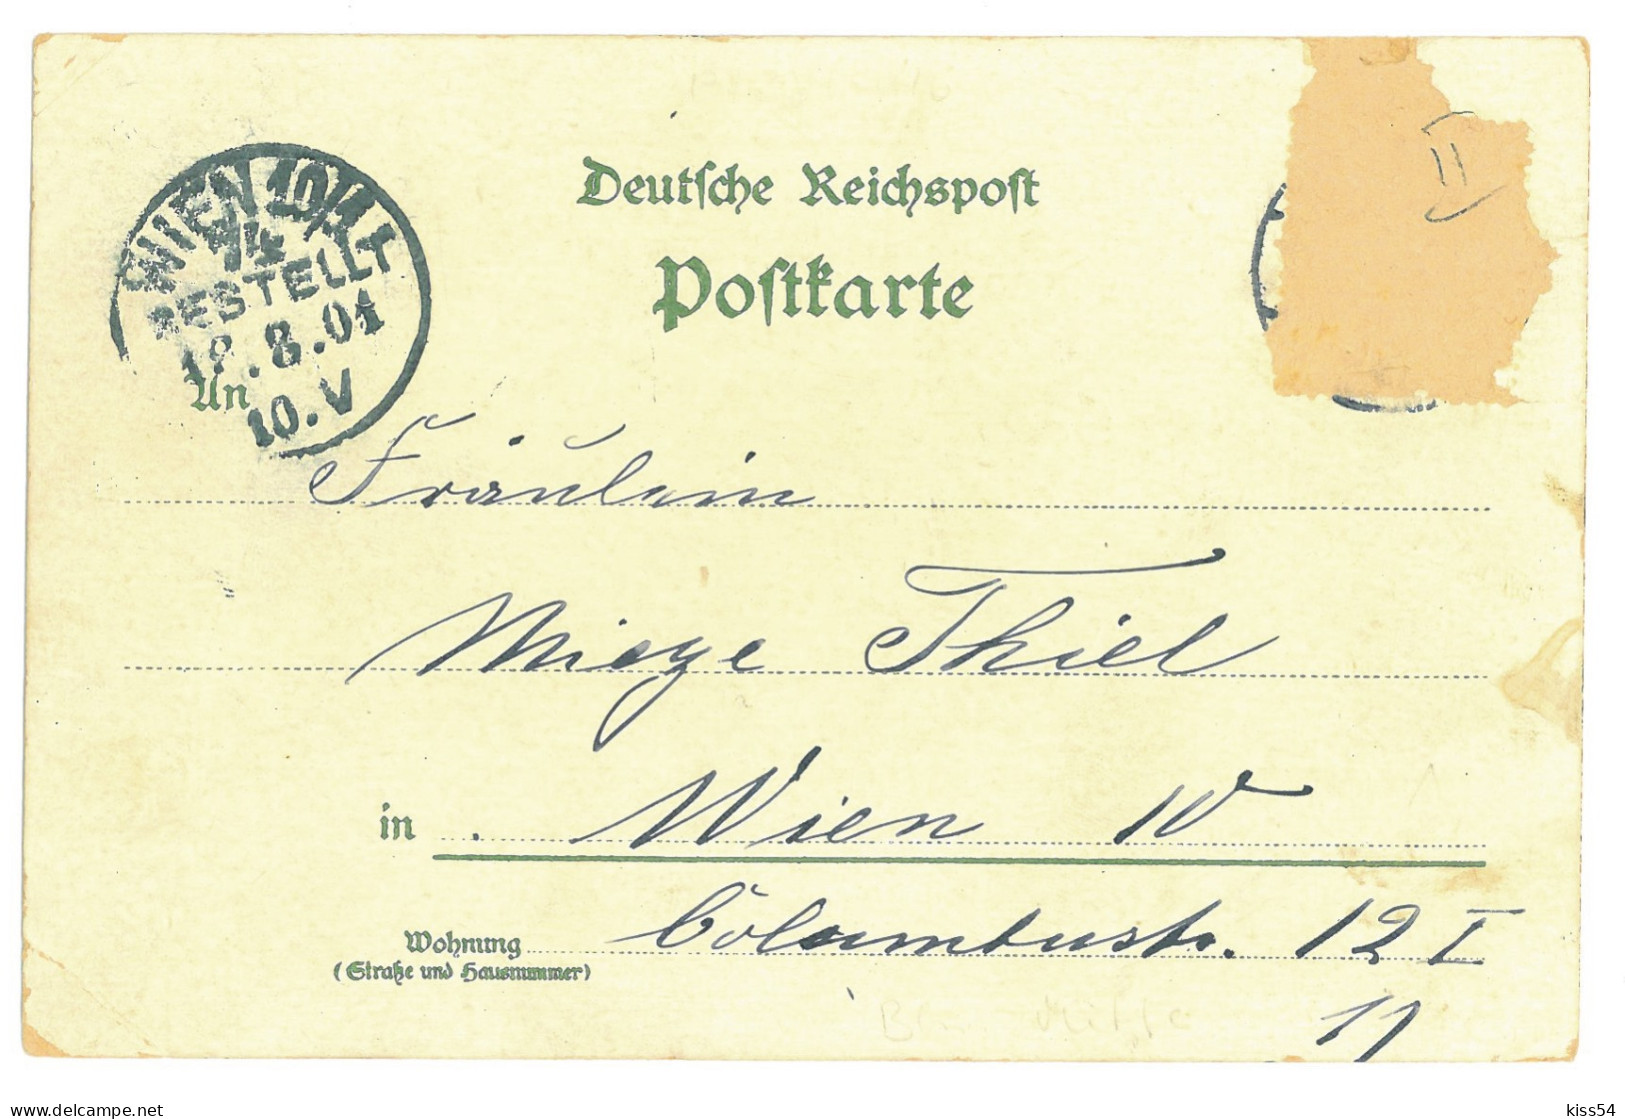 Deutsche Reichspost
Postkarte
WIEN 10/1
74
BESTELLT
18.8.01
10.V
II
An
Fräulein
Mieze Thiel
in Wien IV
Columbustr. 12 I
Wohnung
(Straße und Hausnummer)
11
delcampe.net
kiss54